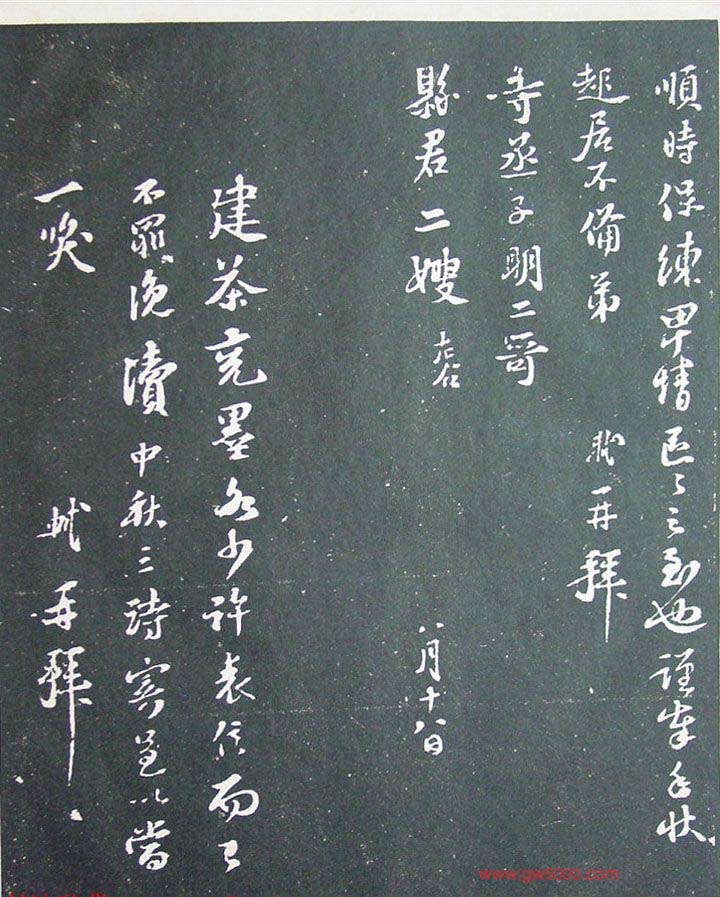 順時保練卑情區區之至也謹奉手狀
起居不備弟 軾再拜
寺丞子明二哥
縣君二嫂 八月十八日
建茶亮墨各少許表信而已
不罪浼瀆中秋三詩寄呈以當
一笑 軾再拜
www.gw5000.com